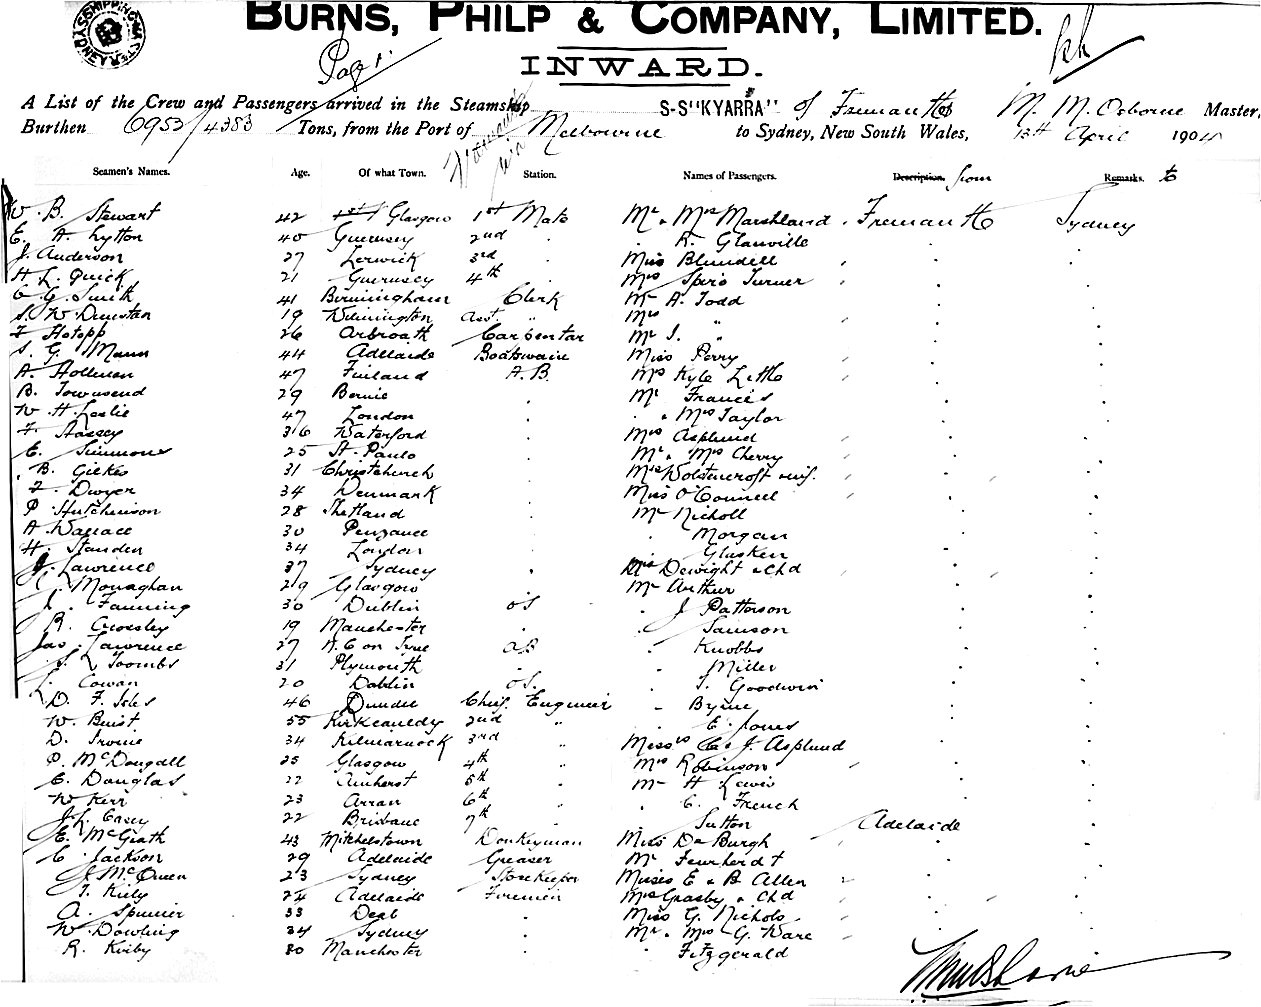 BURNS, PHILP & COMPANY, LIMITED.
Page 1.
INWARD.
A List of the Crew and Passengers arrived in the Steamship S-S "KYARRA" of Fremantle M. M. Osborne Master,
Burthen 6952/4383 Tons, from the Port of Melbourne to Sydney, New South Wales, 13th April 1904
Seamen's Names. Age. Of what Town. Station. Names of Passengers. Description. from Remarks. to
W. B. Stewart 42 Glasgow 1st Mate Mr & Mrs Marshland Fremantle Sydney
E. A. Lytton 40 Guernsey 2nd R. Glanville
J. Anderson 27 Lerwick 3rd Miss Blundell
H. L. Quick 21 Guernsey 4th Mrs Spiro Turner
C. G. Smith 41 Birmingham Clerk Mr A. Todd
S. W. Dunstan 19 Wilmington Asst. " Mrs "
F. Hotopp 26 Arbroath Carpenter Mr S. "
S. G. Mann 44 Adelaide Boatswain Miss Perry
A. Hollman 47 Finland A.B. Mrs Kyle Little
B. Townsend 29 Mr Francis
W. H. Leslie 47 London & Mrs Taylor
F. 36 Waterford Mrs Asplund
E. Simmons 25 St. Paulo Mr & Mrs Cherry
B. Gilkes 31 Christchurch Mrs Wolstencroft inf.
F. Dwyer 34 Denmark Miss O'Connell
P. Hutchinson 28 Shetland Mr Nicholl
A. Wallace 30 Penzance Morgan
H. Standen 34 London Glasken
J. Lawrence 37 Sydney Mrs Dewight & Chd
C. Monaghan 29 Glasgow Mr Arthur
J. Fanning 30 Dublin OS J Patterson
R. Crossley 19 Manchester Samson
Jas. Lawrence 27 N.C on Tyne AB Knobbs
S. L. Toombs 31 Plymouth Miller
L. Cowan 20 Dublin OS. T. Goodwin
D. F. Isles 46 Dundee Chief Engineer Byrne
W. Buist 55 Kirkcauldy 2nd " E. Jones
D. Irvine 34 Kilmarnock 3rd " Misses C & J. Asplund
P. McDougall 25 Glasgow 4th " Mrs Robinson
C. Douglas 22 Amherst 5th " Mr H. Lewis
W. Kerr 23 Arran 6th " C. French
J. L. Casey 22 Brisbane 7th " Sutton Adelaide
E. McGrath 43 Mitchelstown Donkeyman Miss De Burgh
C. Jackson 29 Adelaide Greaser Mr Feurherdt
J. McOwen 23 Sydney Storekeeper Misses E & B Allen
T. Kiely 24 Adelaide Firemen Mrs Grasby & Chd
A. Spurrier 33 Deal Miss G. Nichols
W. Dowling 34 Sydney Mr & Mrs G. Ware
R. Kirby 30 Manchester Fitzgerald